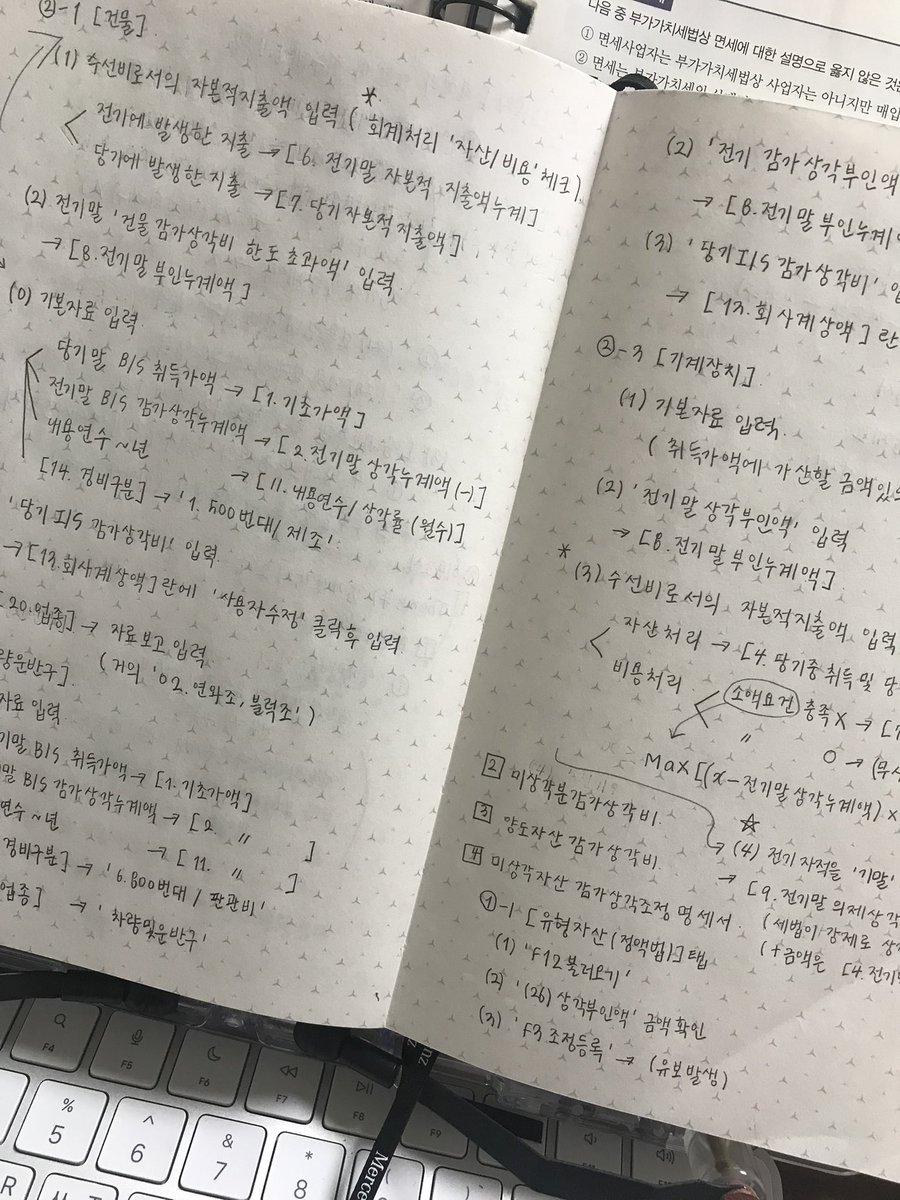 ②-1 [건물]
(1) 수선비로서의 자본적지출액 입력 ( * 회계처리 '자산/비용' 체크)
전기에 발생한 지출 → [6. 전기말 자본적 지출액누계]
당기에 발생한 지출 → [7. 당기자본적지출액]
(2) 전기말 '건물감가상각비 한도초과액' 입력
→ [8. 전기말부인누계액]
(0) 기본자료 입력
당기말 B/S 취득가액 → [1. 기초가액]
전기말 B/S 감가상각누계액 → [2. 전기말상각누계액(-)]
내용연수 ~년 → [11. 내용연수/상각률(월수)]
[14. 경비구분] → '1. 500번대/제조'
'당기 I/S 감가상각비' 입력
→ [13. 회사계상액] 란에 '사용자수정' 클릭후 입력
20. 업종] → 자료보고 입력
(거의 '02. 연와조, 블럭조')
량운반구]
자료 입력
기말 B/S 취득가액 → [1. 기초가액]
말 B/S 감가상각누계액 → [2. 〃 ]
연수 ~년 → [11. 〃 ]
경비구분] → '6. 800번대/판관비'
업종] → '차량및운반구'
(2) '전기 감가상각부인액
→ [8. 전기말부인누계
(3) '당기 I/S 감가상각비'
→ [13. 회사계상액] 란
②-3 [기계장치]
(1) 기본자료 입력
(취득가액에 가산할 금액있
(2) '전기말상각부인액' 입력
→ [8. 전기말부인누계액]
* (3) 수선비로서의 자본적지출액 입력
자산처리 → [4. 당기중취득및 당
비용처리 소액요건 충족 X → [7
〃 O →
Max[(x-전기말상각누계액) x
② 미상각분감가상각비
③ 양도자산 감가상각비
④ 미상각자산 감가상각조정명세서
☆
→ (4) 전기 자적을 '기말'
→ [9. 전기말의제상각
(세법이 강제로 상
(+금액은 [4. 전기
①-1 [유형자산(정액법)] 탭
(1) 'F12 불러오기'
(2) '(26) 상각부인액' 금액확인
(3) 'F3 조정등록' → (유보발생)
다음 중 부가가치세법상 면세에 대한 설명으로 옳지 않은 것은
① 면세사업자는 부가가치세법상 사업자는 아니지만 매입
② 면세는 부가가치세의
F4
F5
F6
F7
F8
F9
%
5
^
6
&
7
*
8
R
Merce
nz